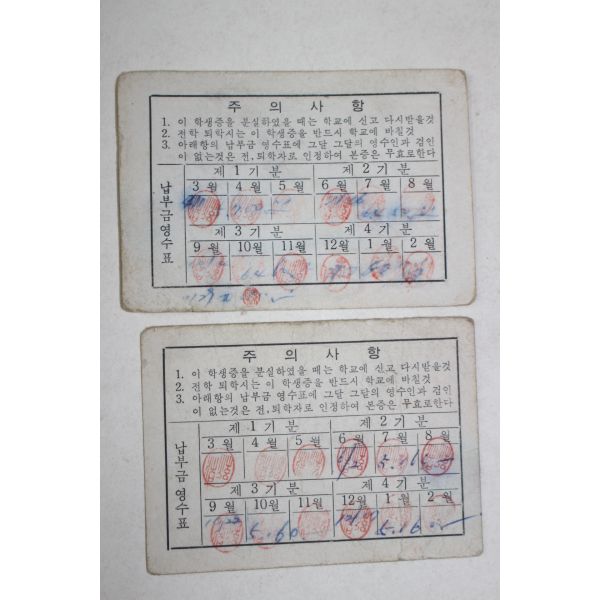 주의사항
1. 이 학생증을 분실하였을 때는 학교에 신고 다시받을것
2. 전학 퇴학시는 이 학생증을 반드시 학교에 바칠것
3. 아래항의 납부금 영수표에 그달 그달의 영수인과 검인
이 없는것은 전,퇴학자로 인정하여 본증은 무효로한다
납부금영수표
제 1 기 분 제 2 기 분
3월 4월 5월 6월 7월 8월
제 3 기 분 제 4 기 분
9월 10월 11월 12월 1월 2월
주의사항
1. 이 학생증을 분실하였을 때는 학교에 신고 다시받을것
2. 전학 퇴학시는 이 학생증을 반드시 학교에 바칠것
3. 아래항의 납부금 영수표에 그달 그달의 영수인과 검인
이 없는것은 전,퇴학자로 인정하여 본증은 무효로한다
납부금영수표
제 1 기 분 제 2 기 분
3월 4월 5월 6월 7월 8월
제 3 기 분 제 4 기 분
9월 10월 11월 12월 1월 2월